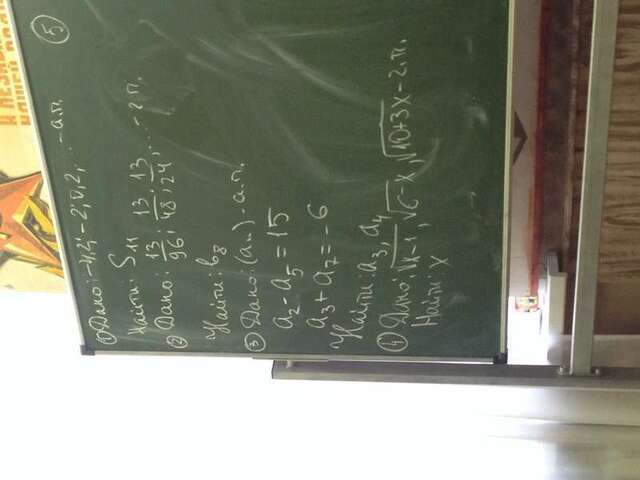 ⑤
① Дано: -4,2; -2; 0,2, ... - а.п.
Найти: S₁₁
② Дано: 13/96; 13/48; 13/24, ... - г.п.
Найти: b₈
③ Дано: (aₙ) - а.п.
a₂ - a₅ = 15
a₃ + a₇ = -6
Найти: a₃, a₄
④ Дано: √x-1, √6-x, √10+3x - г.п.
Найти: x